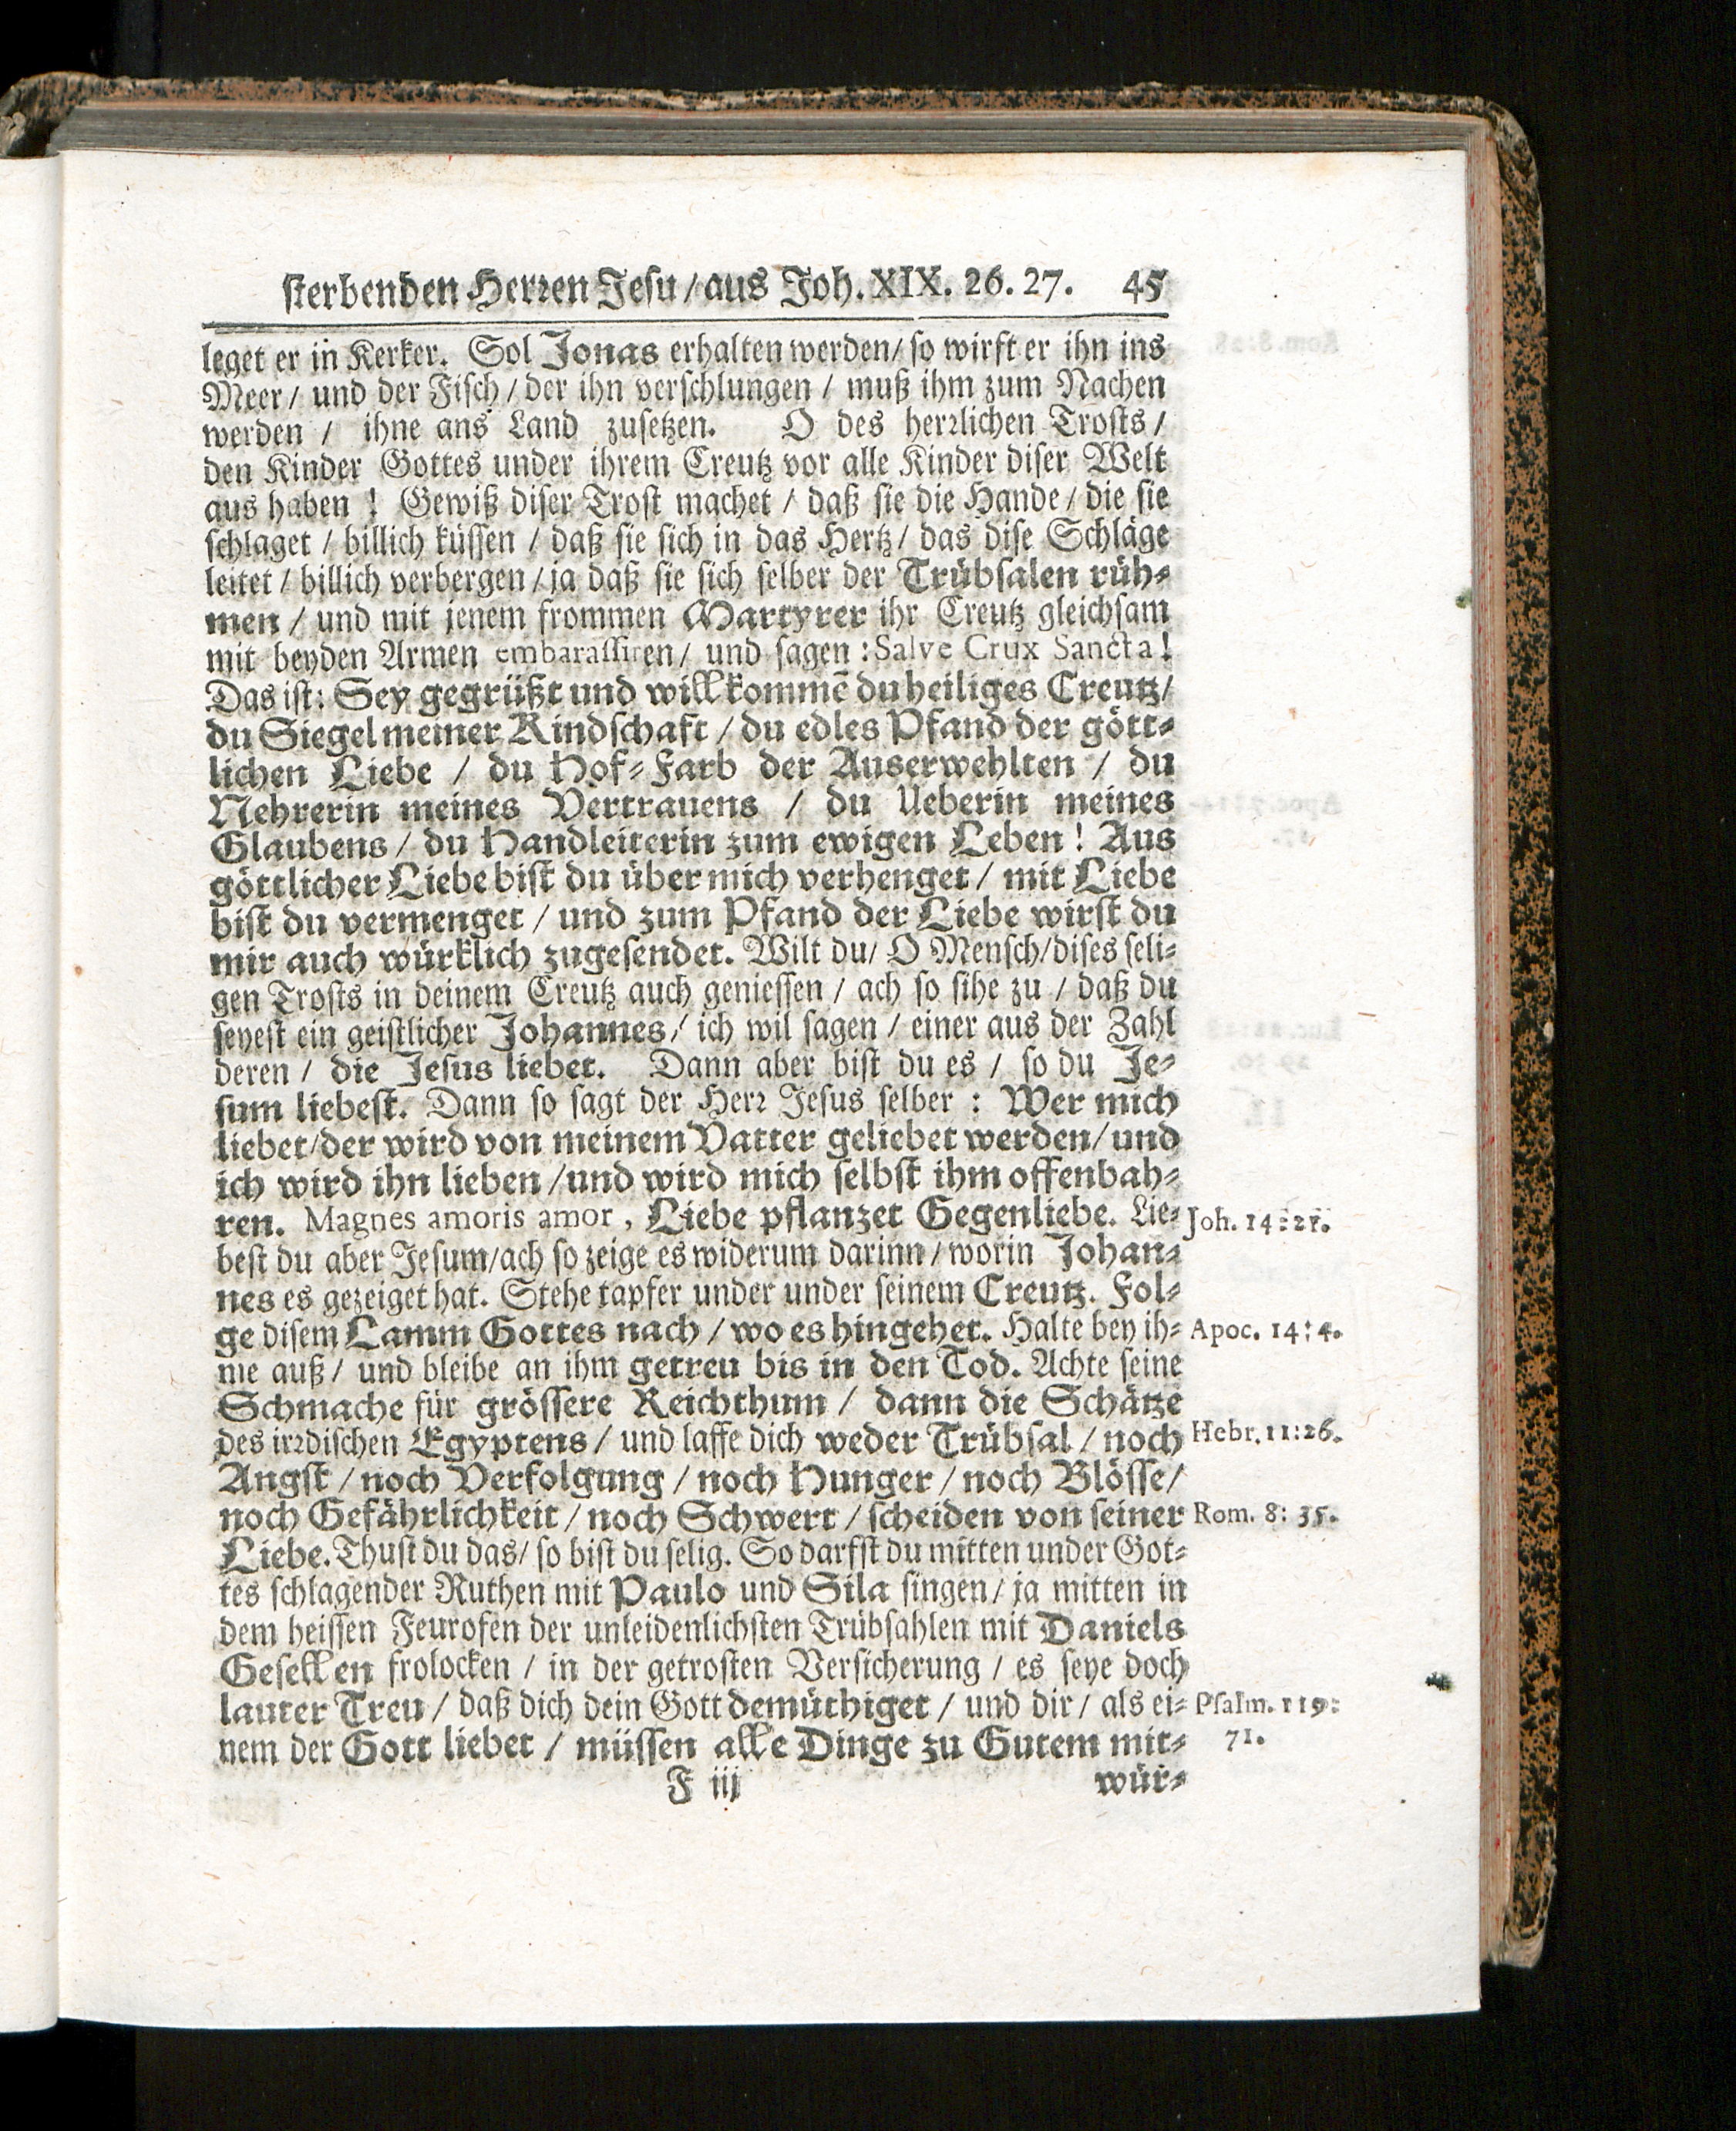 sterbenden Herren Jesu / aus Joh. XIX. 26. 27. 45
leget er in Kerker. Sol Jonas erhalten werden / so wirft er ihn ins
Meer / und der Fisch / der ihn verschlungen / muß ihm zum Nachen
werden / ihne ans Land zusetzen. O des herrlichen Trosts /
den Kinder Gottes under ihrem Creutz vor alle Kinder diser Welt
aus haben ! Gewiß diser Trost machet / daß sie die Hande / die sie
schlaget / billich küssen / daß sie sich in das Hertz / das dise Schläge
leitet / billich verbergen / ja daß sie sich selber der Trübsalen rüh-
men / und mit jenem frommen Martyrer ihr Creutz gleichsam
mit beyden Armen embarassiren / und sagen : Salve Crux Sancta !
Das ist: Sey gegrüßt und willkommē du heiliges Creutz /
du Siegel meiner Kindschaft / du edles Pfand der gött-
lichen Liebe / du Hof-Farb der Auserwehlten / du
Nehrerin meines Vertrauens / du Ueberin meines
Glaubens / du Handleiterin zum ewigen Leben ! Aus
göttlicher Liebe bist du über mich verhenget / mit Liebe
bist du vermenget / und zum Pfand der Liebe wirst du
mir auch würklich zugesendet. Wilt du / O Mensch / dises seli-
gen Trosts in deinem Creutz auch geniessen / ach so sihe zu / daß du
seyest ein geistlicher Johannes / ich wil sagen / einer aus der Zahl
deren / die Jesus liebet. Dann aber bist du es / so du Je-
sum liebest. Dann so sagt der Herr Jesus selber : Wer mich
liebet / der wird von meinem Vatter geliebet werden / und
ich wird ihn lieben / und wird mich selbst ihm offenbah-
ren. Magnes amoris amor , Liebe pflanzet Gegenliebe. Lie- Joh. 14:21.
best du aber Jesum / ach so zeige es widerum darinn / worin Johan-
nes es gezeiget hat. Stehe tapfer under under seinem Creutz. Fol-
ge disem Lamm Gottes nach / wo es hingehet. Halte bey ih- Apoc. 14:4.
me auß / und bleibe an ihm getreu bis in den Tod. Achte seine
Schmache für grössere Reichthum / dann die Schätze
des irrdischen Egyptens / und lasse dich weder Trübsal / noch Hebr. 11:26.
Angst / noch Verfolgung / noch Hunger / noch Blösse /
noch Gefährlichkeit / noch Schwert / scheiden von seiner Rom. 8: 35.
Liebe. Thust du das / so bist du selig. So darfst du mitten under Got-
tes schlagender Ruthen mit Paulo und Sila singen / ja mitten in
dem heissen Feurofen der unleidenlichsten Trübsahlen mit Daniels
Gesellen frolocken / in der getrosten Versicherung / es seye doch
lauter Treu / daß dich dein Gott demüthiget / und dir / als ei- Psalm. 119:
nem der Gott liebet / müssen alle Dinge zu Gutem mit- 71.
F iij wür-